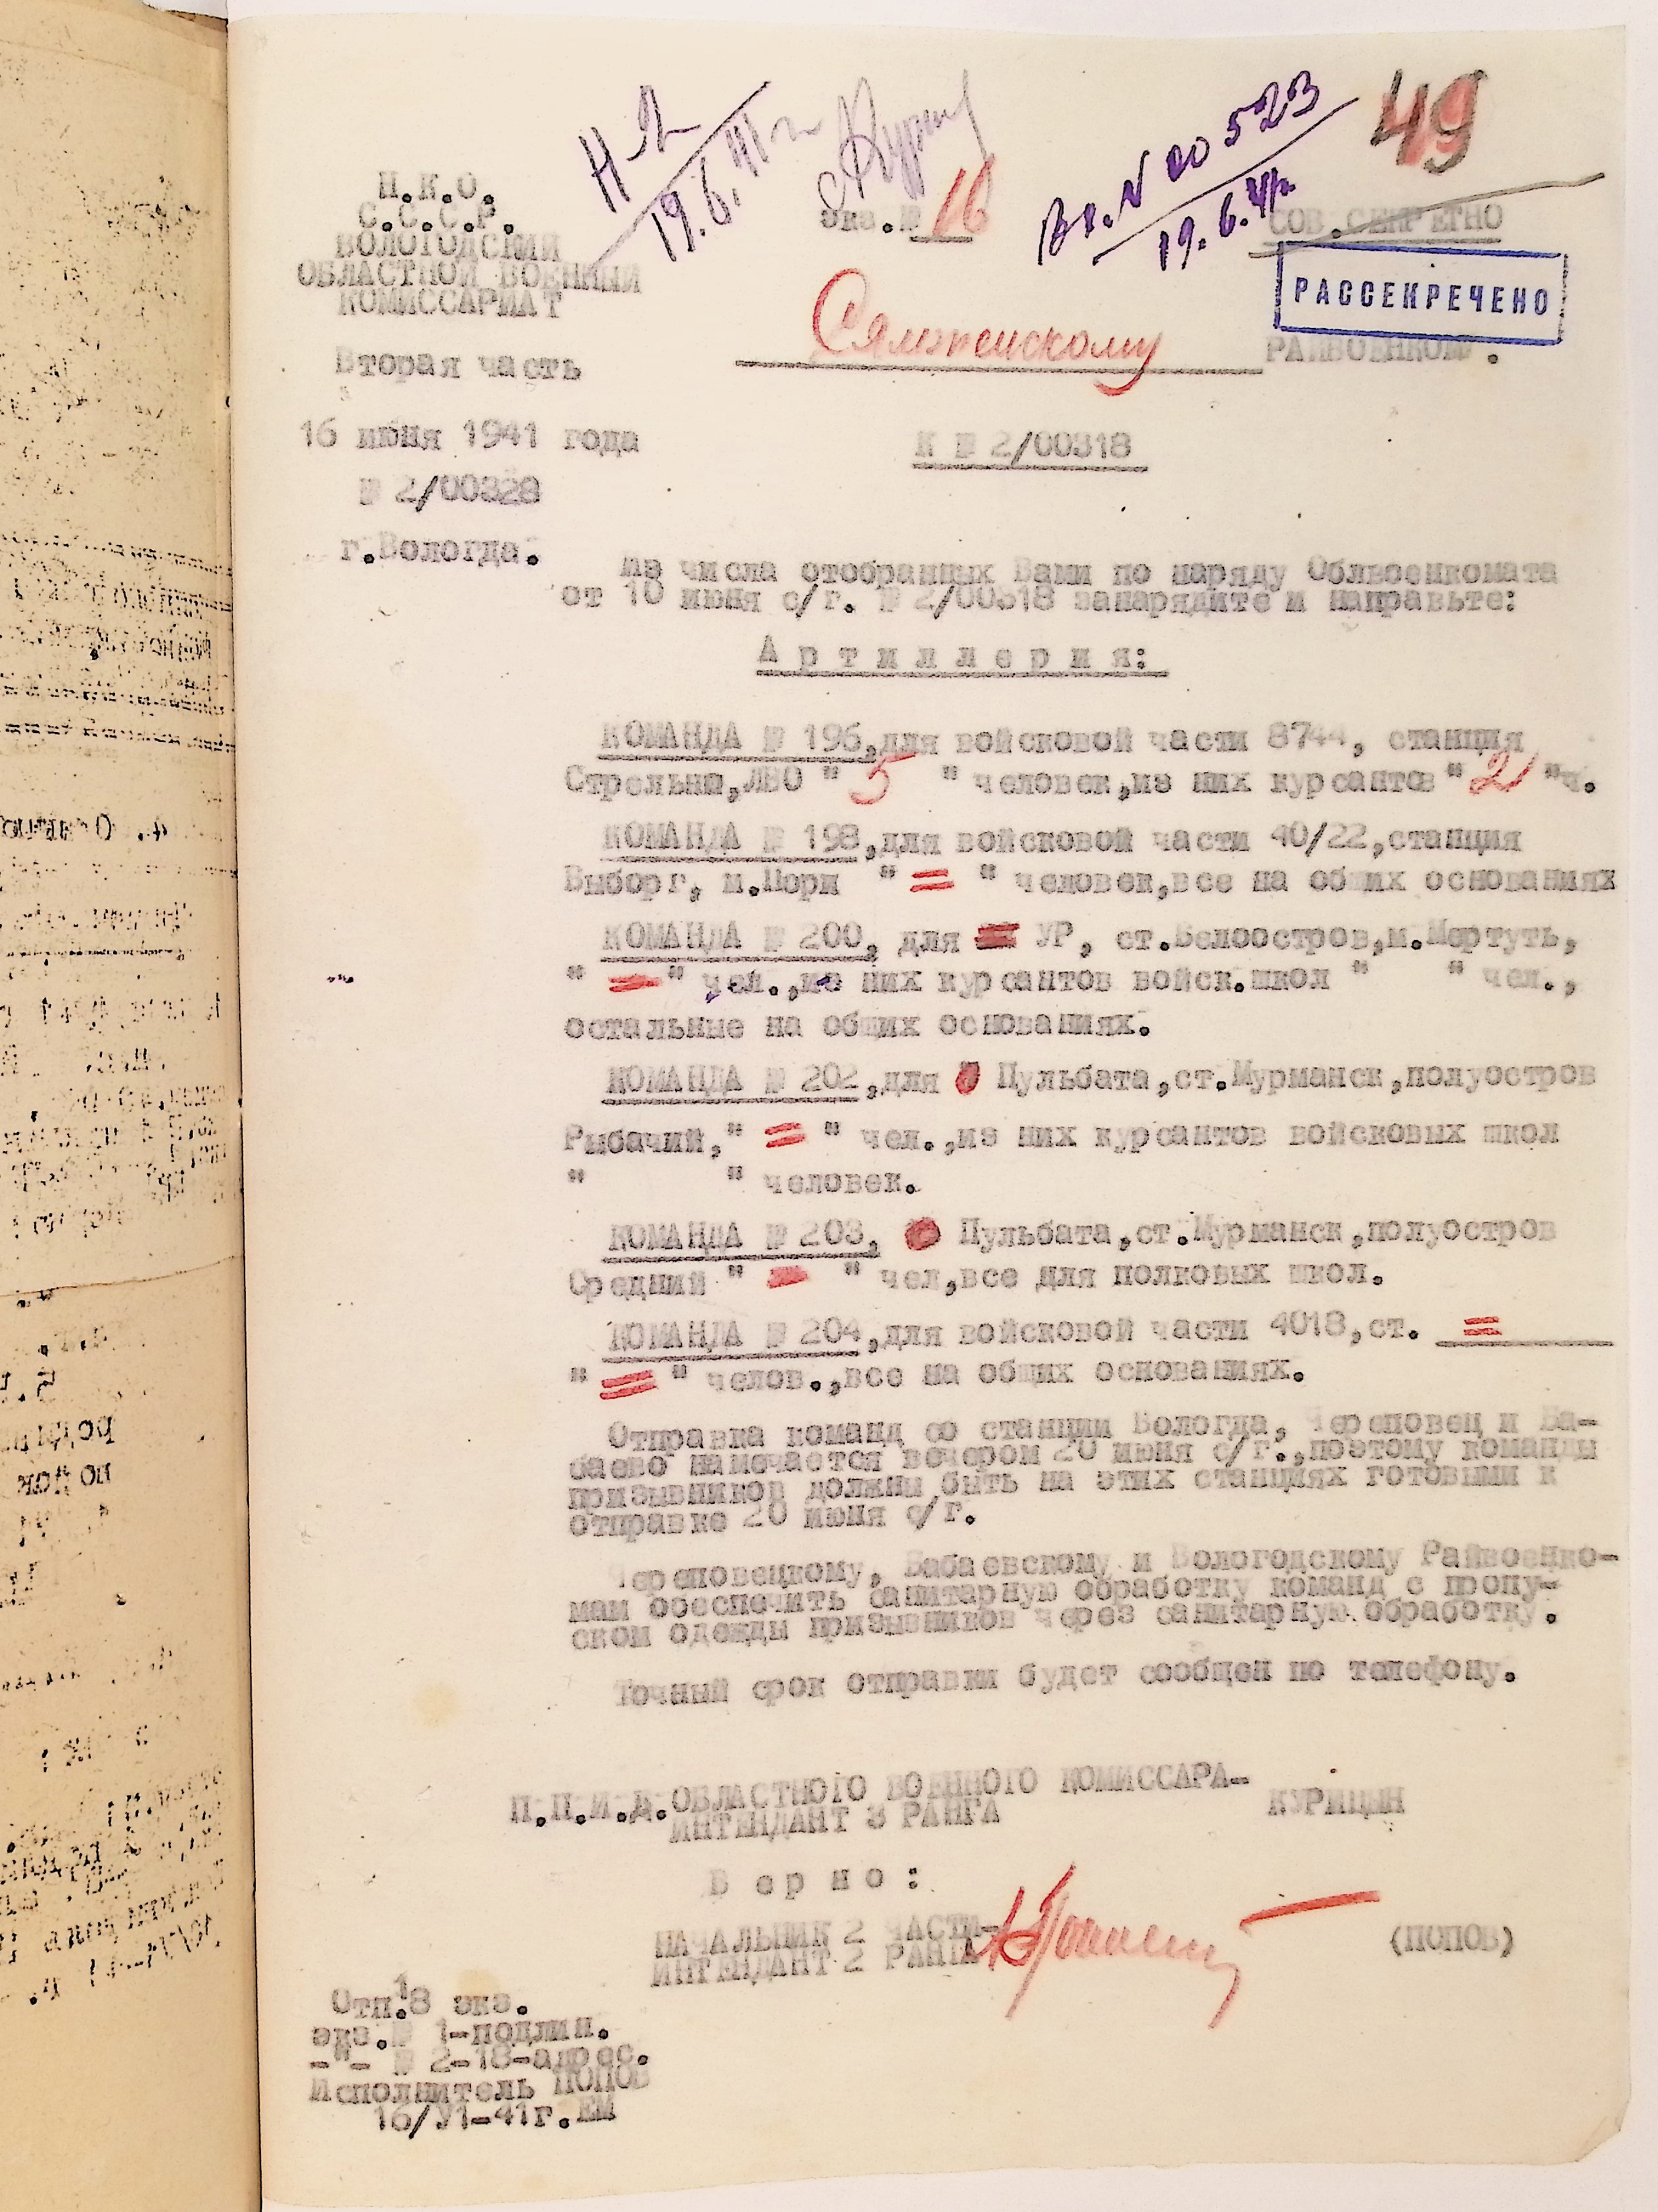 Н-2
19.6.41 г
Вх. N 00523
19.6.41г.
49
Н.К.О.
С.С.С.Р.
ВОЛОГОДСКИЙ
ОБЛАСТНОЙ ВОЕННЫЙ
КОМИССАРИАТ
Вторая часть
16 июня 1941 года
№ 2/00328
г.Вологда.
экз.№ 16
СОВ.СЕКРЕТНО
РАССЕКРЕЧЕНО
Сямженскому РАЙВОЕНКОМУ.
К № 2/00318
Из числа отобранных Вами по наряду Облвоенкомата
от 10 июня с/г. № 2/00318 занарядите и направьте:
Артиллерия:
КОМАНДА № 196,для войсковой части 8744, станция
Стрельна,ЛВО " 5 " человек,из них курсантов " 2 "ч.
КОМАНДА № 198,для войсковой части 40/22,станция
Выборг, м.Порн " = " человек,все на общих основаниях
КОМАНДА № 200, для УР, ст.Белоостров,м.Мертуть,
" = " чел.,из них курсантов войск.школ " " чел.,
остальные на общих основаниях.
КОМАНДА № 202,для Пульбата,ст.Мурманск,полуостров
Рыбачий," = " чел.,из них курсантов войсковых школ
" " человек.
КОМАНДА № 203, Пульбата,ст.Мурманск,полуостров
Средний " = " чел,все для полковых школ.
КОМАНДА № 204,для войсковой части 4018,ст. =
" = " челов.,все на общих основаниях.
Отправка команд со станции Вологда, Череповец и Ба-
баево намечается вечером 20 июня с/г.,поэтому команды
призывников должны быть на этих станциях готовыми к
отправке 20 июня с/г.
Череповецкому, Бабаевскому и Вологодскому Райвоенко-
мам обеспечить санитарную обработку команд с пропу-
ском одежды призывников через санитарную обработку.
Точный срок отправки будет сообщен по телефону.
П.П.И.Д.ОБЛАСТНОГО ВОЕННОГО КОМИССАРА-
ИНТЕНДАНТ 3 РАНГА КУРИЦЫН
Верно:
НАЧАЛЬНИК 2 ЧАСТИ-
ИНТЕНДАНТ 2 РАНГА (ПОПОВ)
Отп.18 экз.
экз.№ 1-подлин.
-"- № 2-18-адрес.
Исполнитель ПОПОВ
16/У1-41г.ЕМ